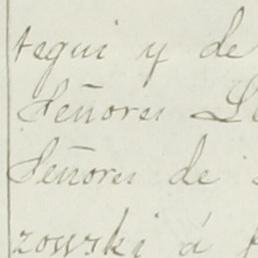 tegui y de
Señores
Señores de
zowski á